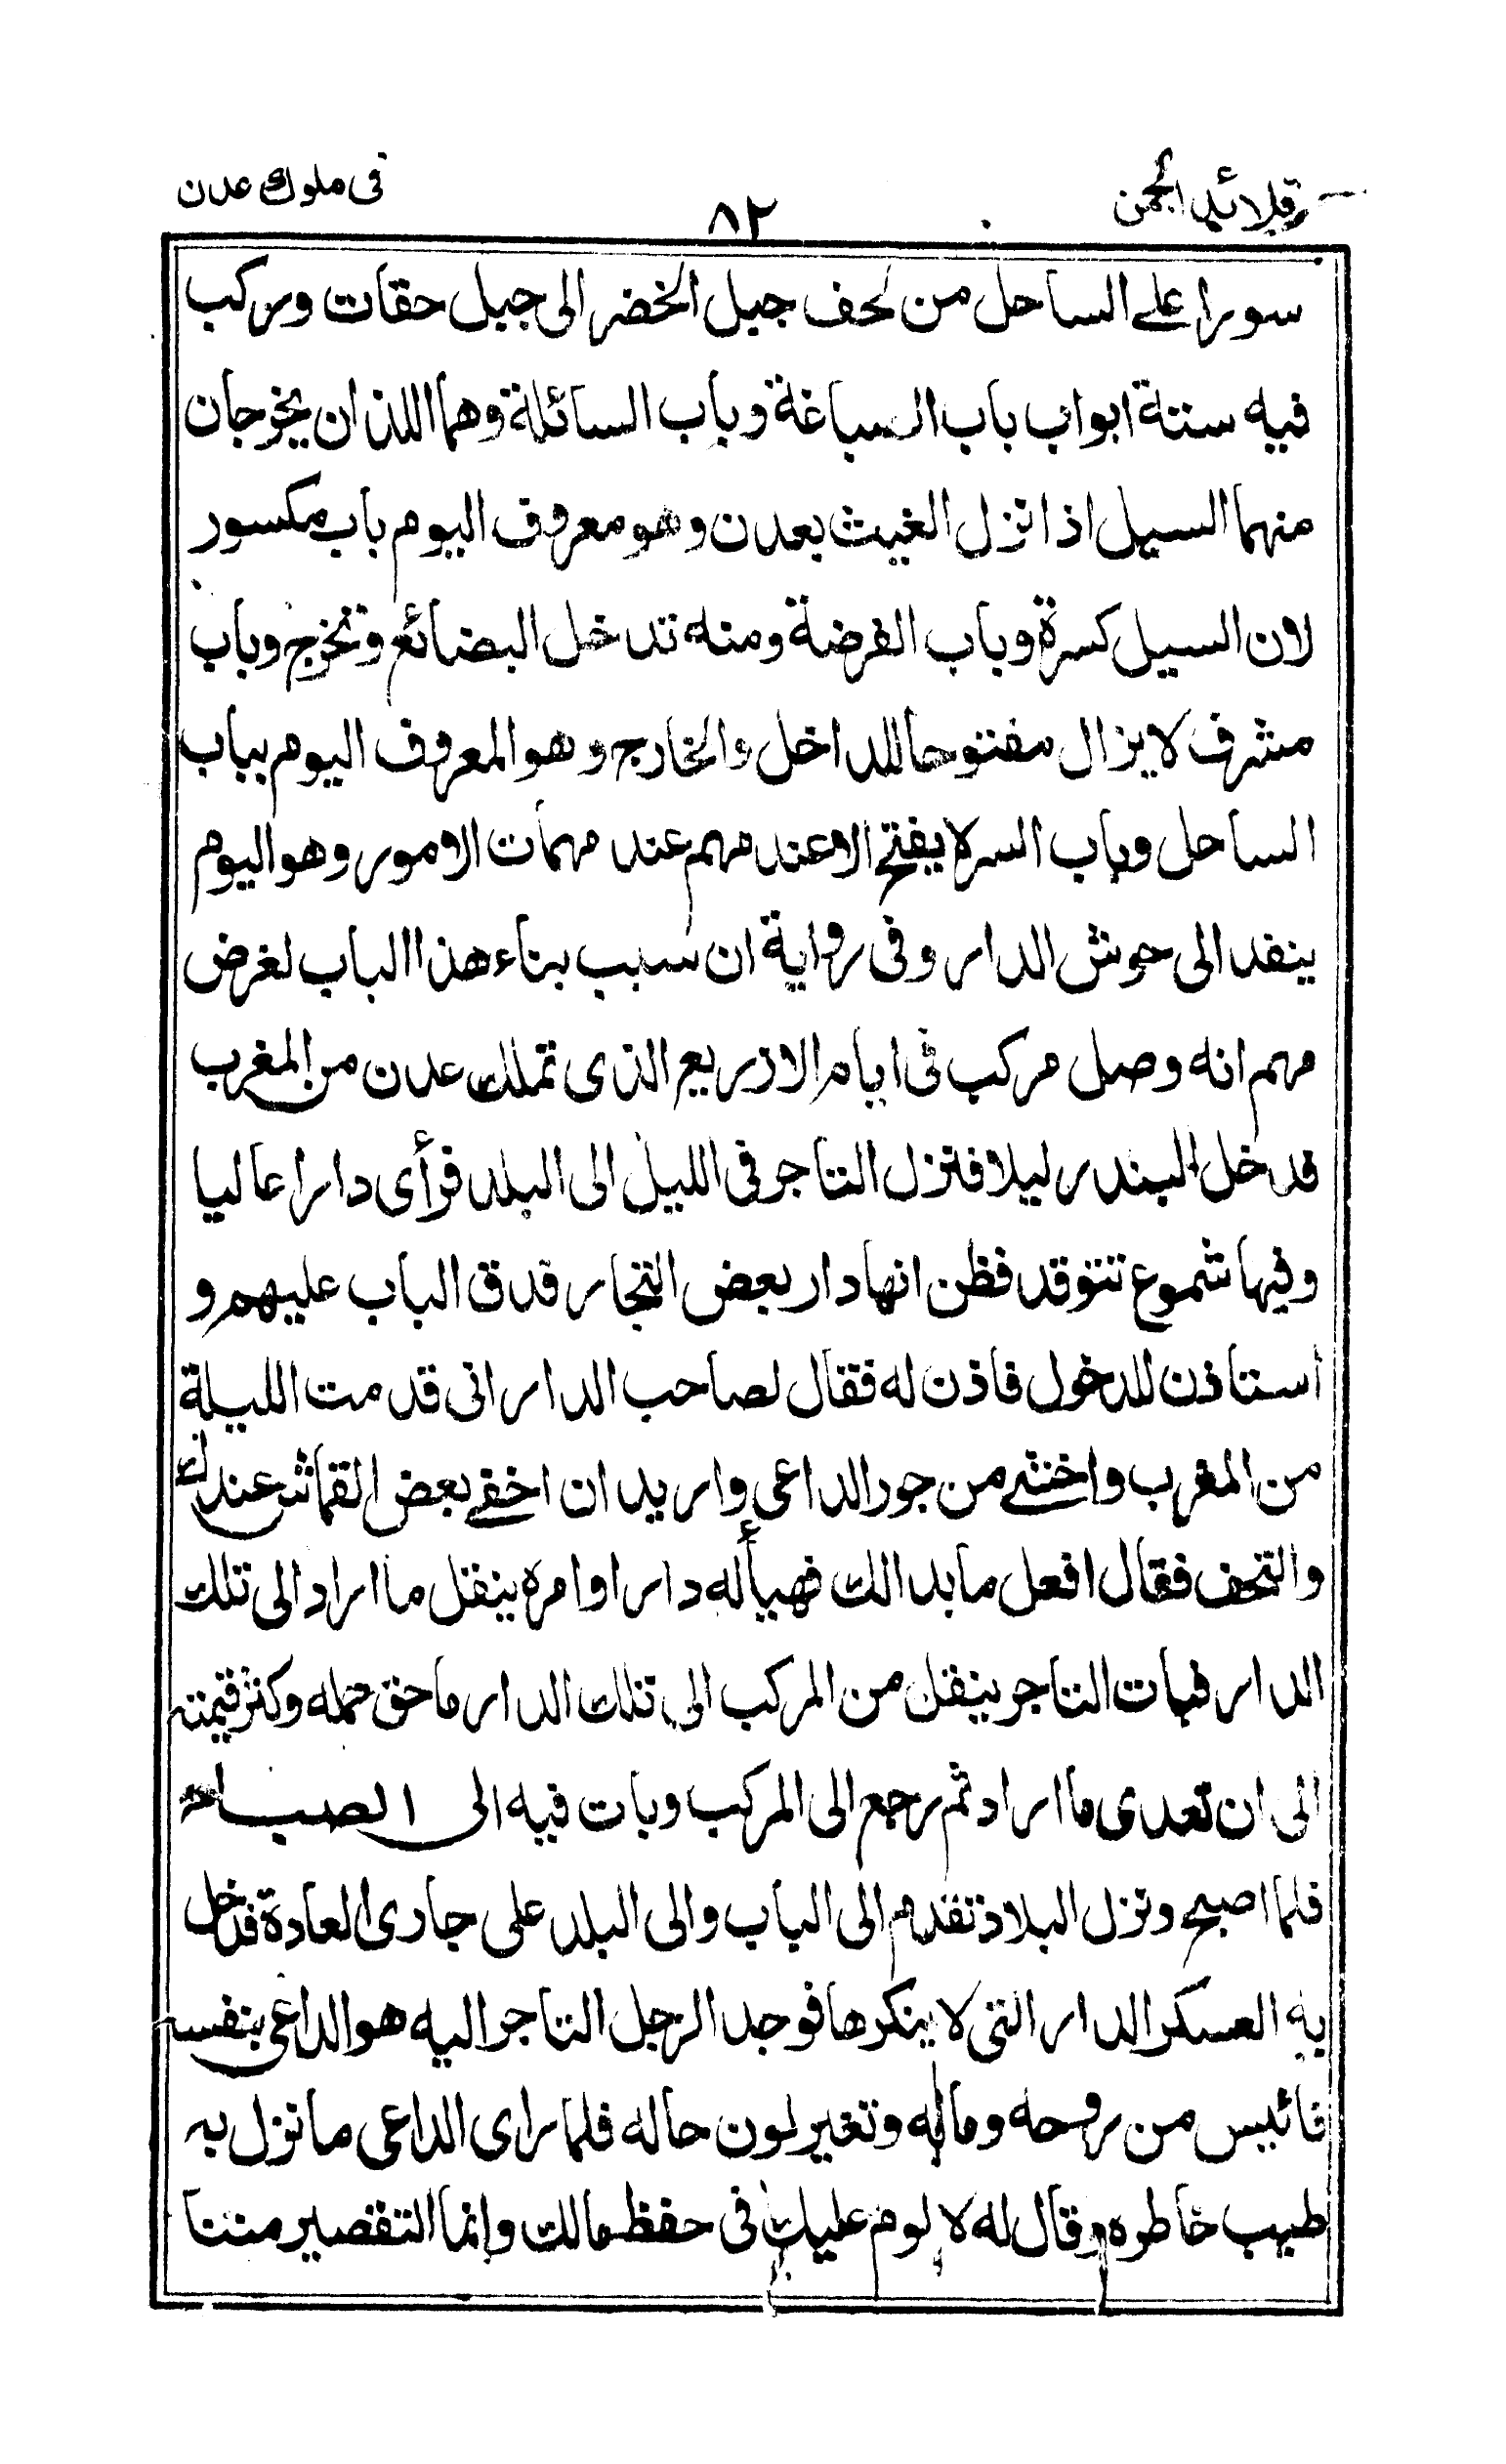 قلائد الجمن
٨٢
فى ملوك عدن
سورا على الساحل من لحف جبل الخضر الى جبل حقات وركب
فيه ستة ابواب باب الصباغة وباب السائلة وهما اللذان يخرجان
منهما السيل اذا نزل الغيث بعدن وهو معروف اليوم باب مكسور
لان السيل كسرة وباب الفرضة ومنه تدخل البضائع وتخرج وباب
مشرف لا يزال مفتوحا للداخل والخارج وهو المعروف اليوم بباب
الساحل وباب السر لا يفتح الا عند مهم عند مهمات الامور وهو اليوم
ينفد الى حوش الدار وفى رواية ان سبب بناء هذا الباب لغرض
مهم انه وصل مركب فى ايام الازريع الذى تملك عدن من المغرب
فدخل البندر ليلا فنزل التاجر فى الليل الى البلد فرأى دارا عاليا
وفيها شموع تتوقد فظن انها دار بعض التجار فدق الباب عليهم و
أستاذن للدخول فاذن له فقال لصاحب الدار انى قدمت الليلة
من المغرب واخشى من جور الداعى واريد ان اخفى بعض القماش عندك
والتحف فقال افعل ما بدا لك فهيأله دارا وامره بنقل ما اراد الى تلك
الدار فبات التاجر ينقل من المركب الى تلك الدار ما حق حمله وكنز قيمته
الى ان تعدى ما اراد ثم رجع الى المركب وبات فيه الى الصباح
فلما اصبح ونزل البلاد تقدم الى الباب والى البلد على جارى العادة فدخل
به العسكر الدار التى لا ينكرها فوجد الرجل التاجر اليه هو الداعى بنفسه
فائيس من روحه وماله وتغير لون حاله فلما راى الداعى ما نزل به
طيب خاطره وقال له لا لوم عليك فى حفظ مالك وانما التقصير منتا